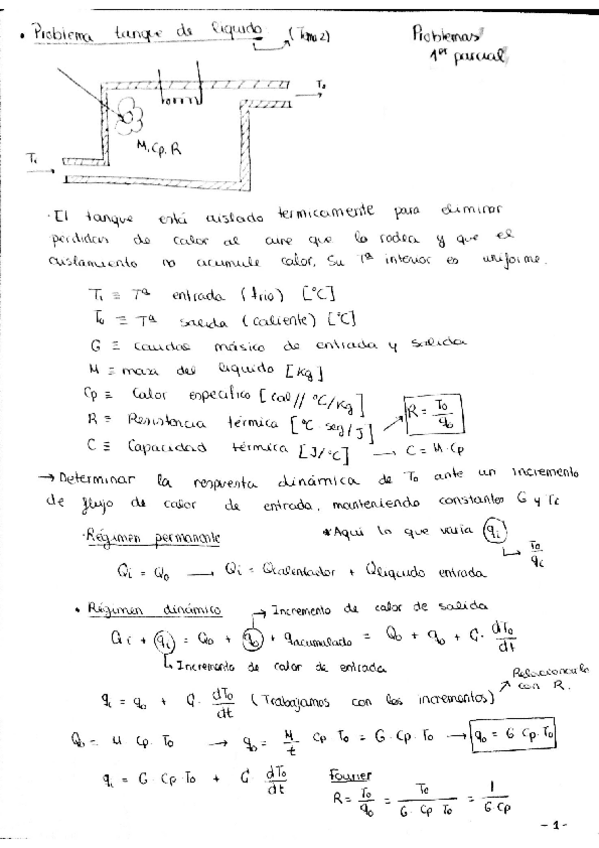 • Problema tanque de líquido (Tema 2)
Problemas
1er parcial
To
M, Cp, R
Ti
· El tanque está aislado termicamente para eliminar
perdidas de calor al aire que lo rodea y que el
aislamiento no acumule calor. Su Tª interior es uniforme.
Ti ≡ Tª entrada (frio) [°C]
To ≡ Tª salida (caliente) [°C]
G ≡ caudal másico de entrada y salida
M ≡ masa del liquido [Kg]
Cp ≡ Calor especifico [cal// °C/Kg]
R ≡ Resistencia térmica [°C seg/J] → R = To/qo
C ≡ Capacidad térmica [J/°C] → C = M·Cp
→ Determinar la respuesta dinámica de To ante un incremento
de flujo de calor de entrada, manteniendo constantes G y Ti
· Régimen permanente
* Aqui lo que varia qi
→ To/qi
Qi = Qo → Qi = Qcalentador + Qliquido entrada
• Régimen dinámico
→ Incremento de calor de salida
Qi + qi = Qo + qo + qacumulado = Qo + qo + C· dTo/dt
↳ Incremento de calor de entrada
qi = qo + C· dTo/dt (Trabajamos con los incrementos)
Relacionarlo
con R.
Qo = M Cp·To → qo = M/t Cp To = G·Cp·To → qo = G Cp·To
qi = G·Cp·To + C· dTo/dt
Fourier
R = To/qo = To/G·Cp To = 1/G·Cp
- 1 -